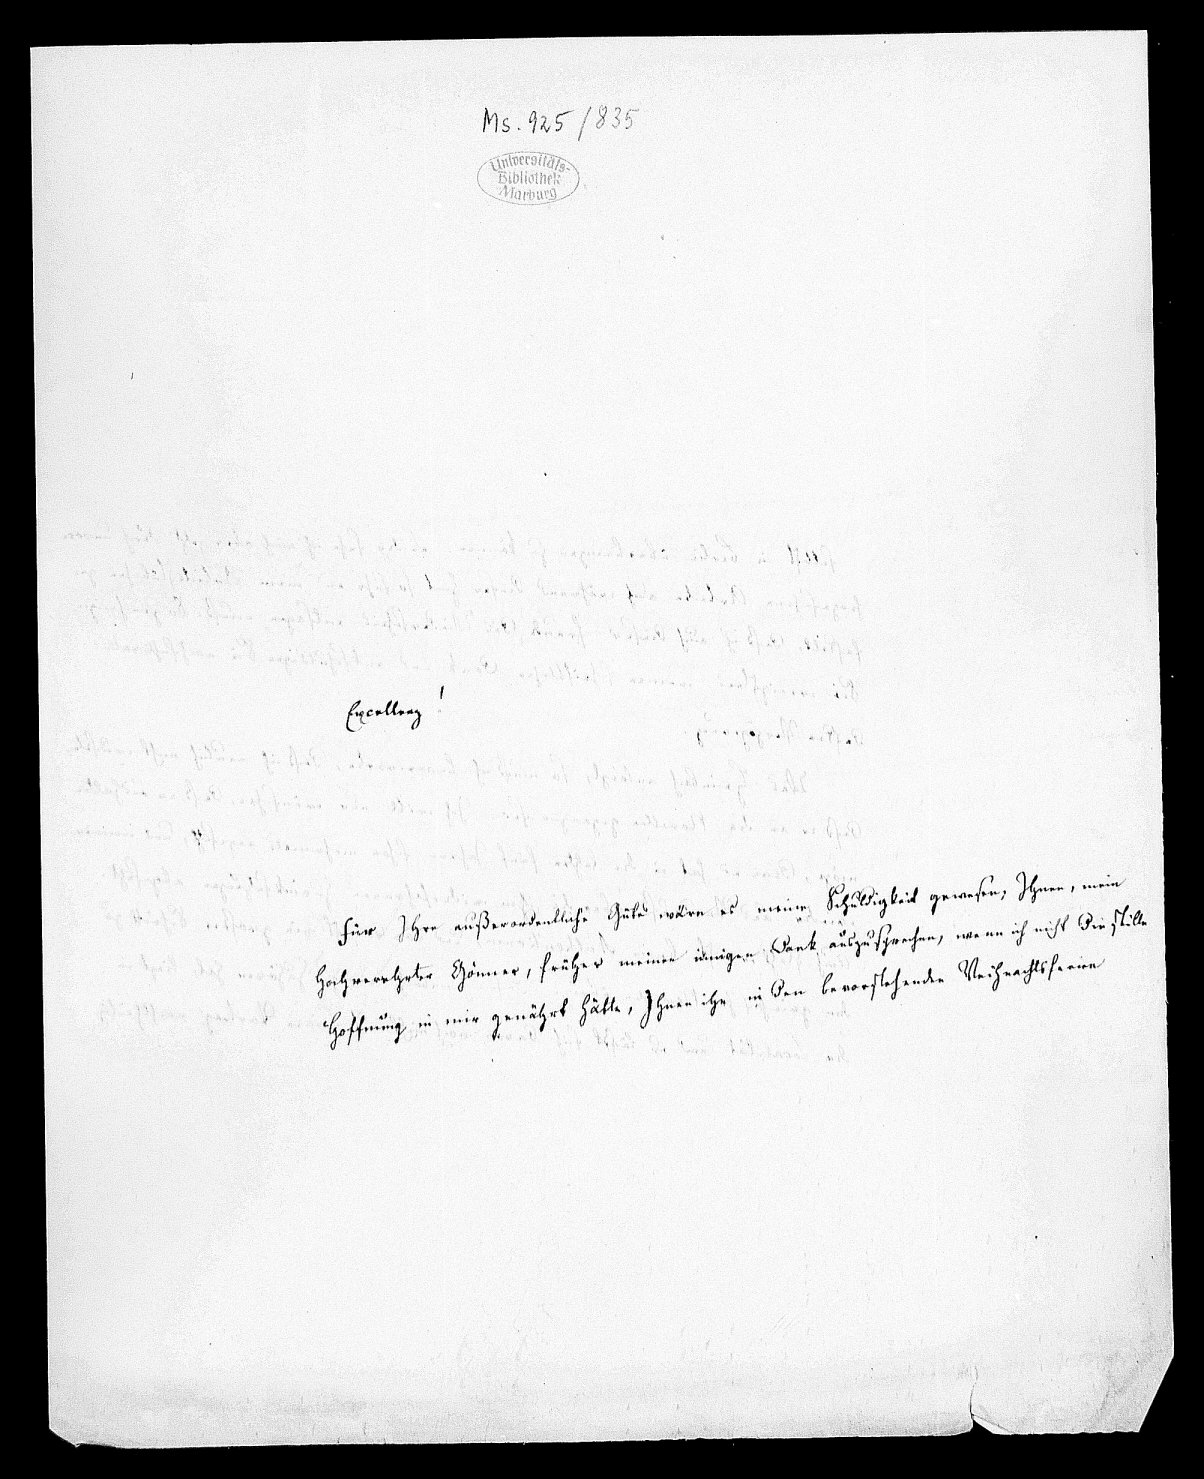 Ms. 925/835
Universitäts-
Bibliothek
Marburg
Excellenz!
Für Ihre außerordentliche Güte wäre es meine Schuldigkeit gewesen, Ihnen, mein
hochverehrter Gönner, früher meinen innigen Dank auszusprechen, wenn ich nicht die stille
Hoffnung in mir genährt hätte, Ihnen ihn in den bevorstehenden Weihnachtsferien